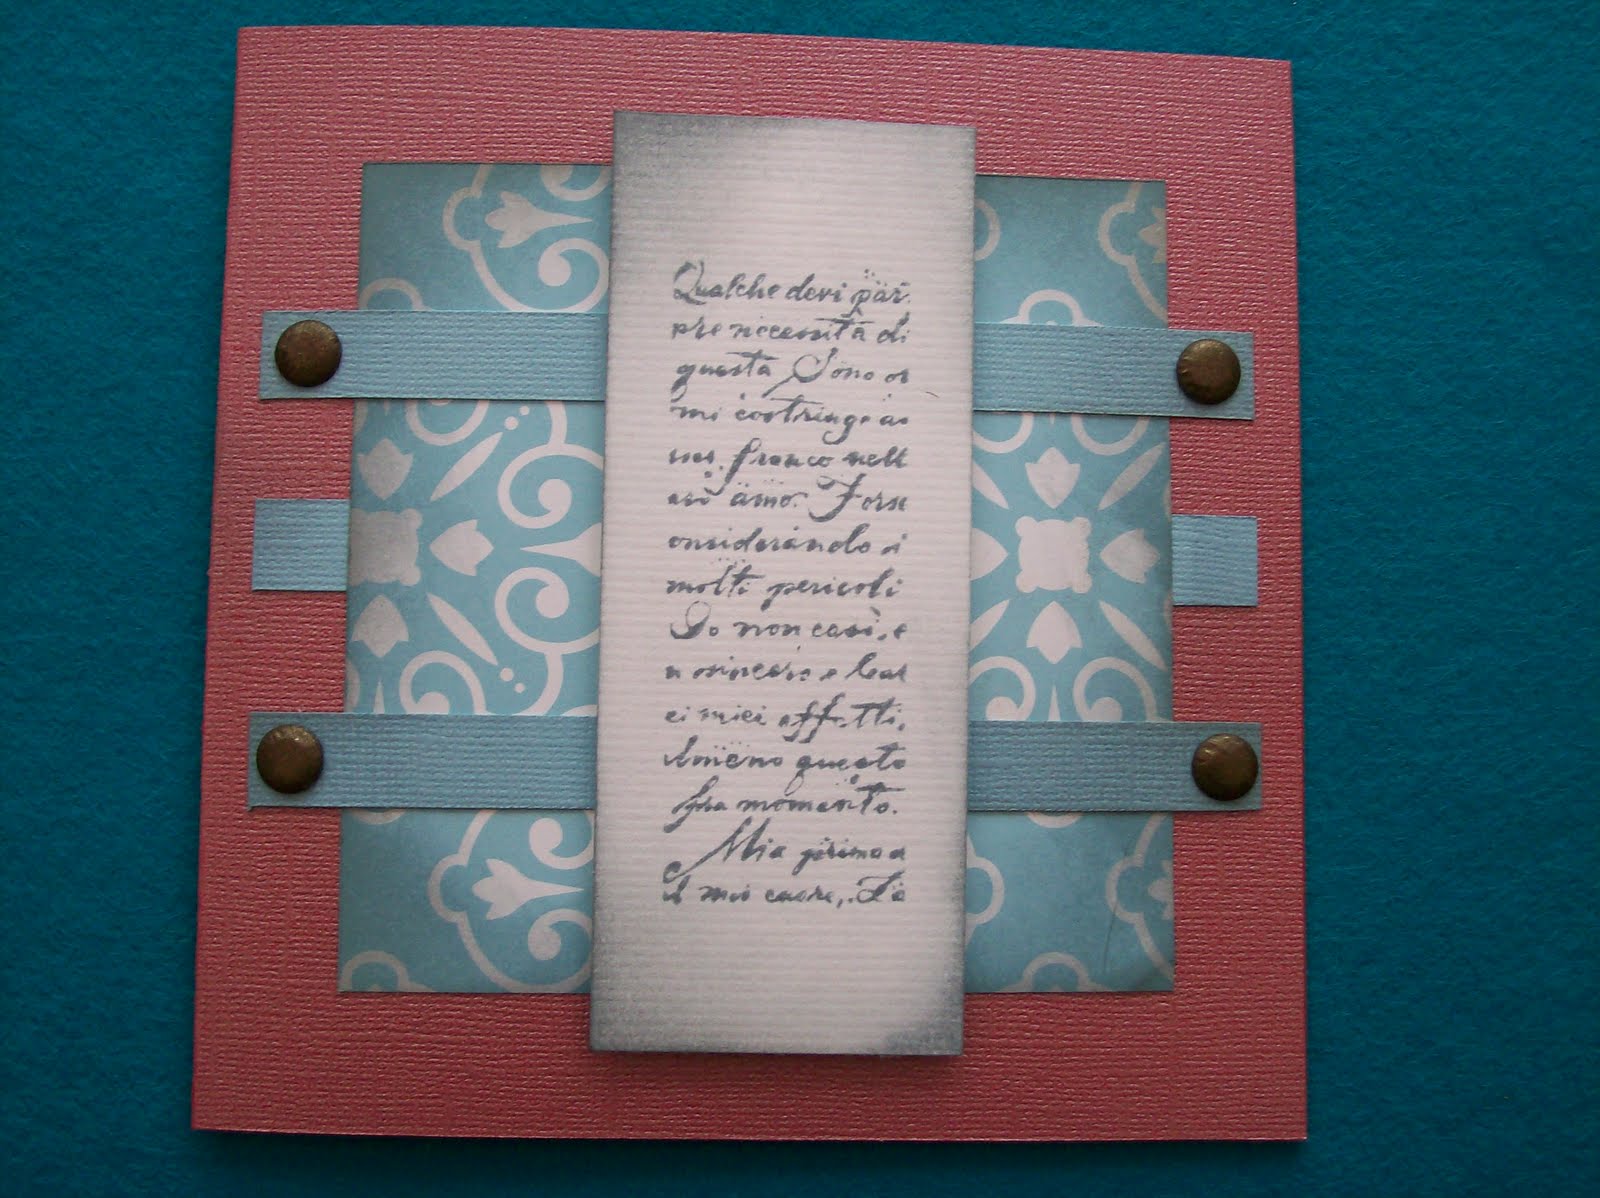 Qualche devi par
pre necessità di
questa Sono or
mi costringe a
franco nell
amo. Forse
onsiderando si
molti pericoli
Io non casì, e
n sincero e leal
ei miei affetti,
lmeno questo
fra momento.
Mia primo a
il mio cuore, Io